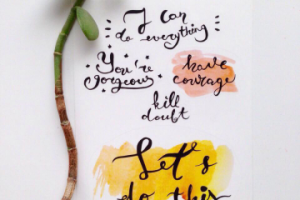 I can
do everything
You're
gorgeous
have
courage
kill
doubt
Let's
do this